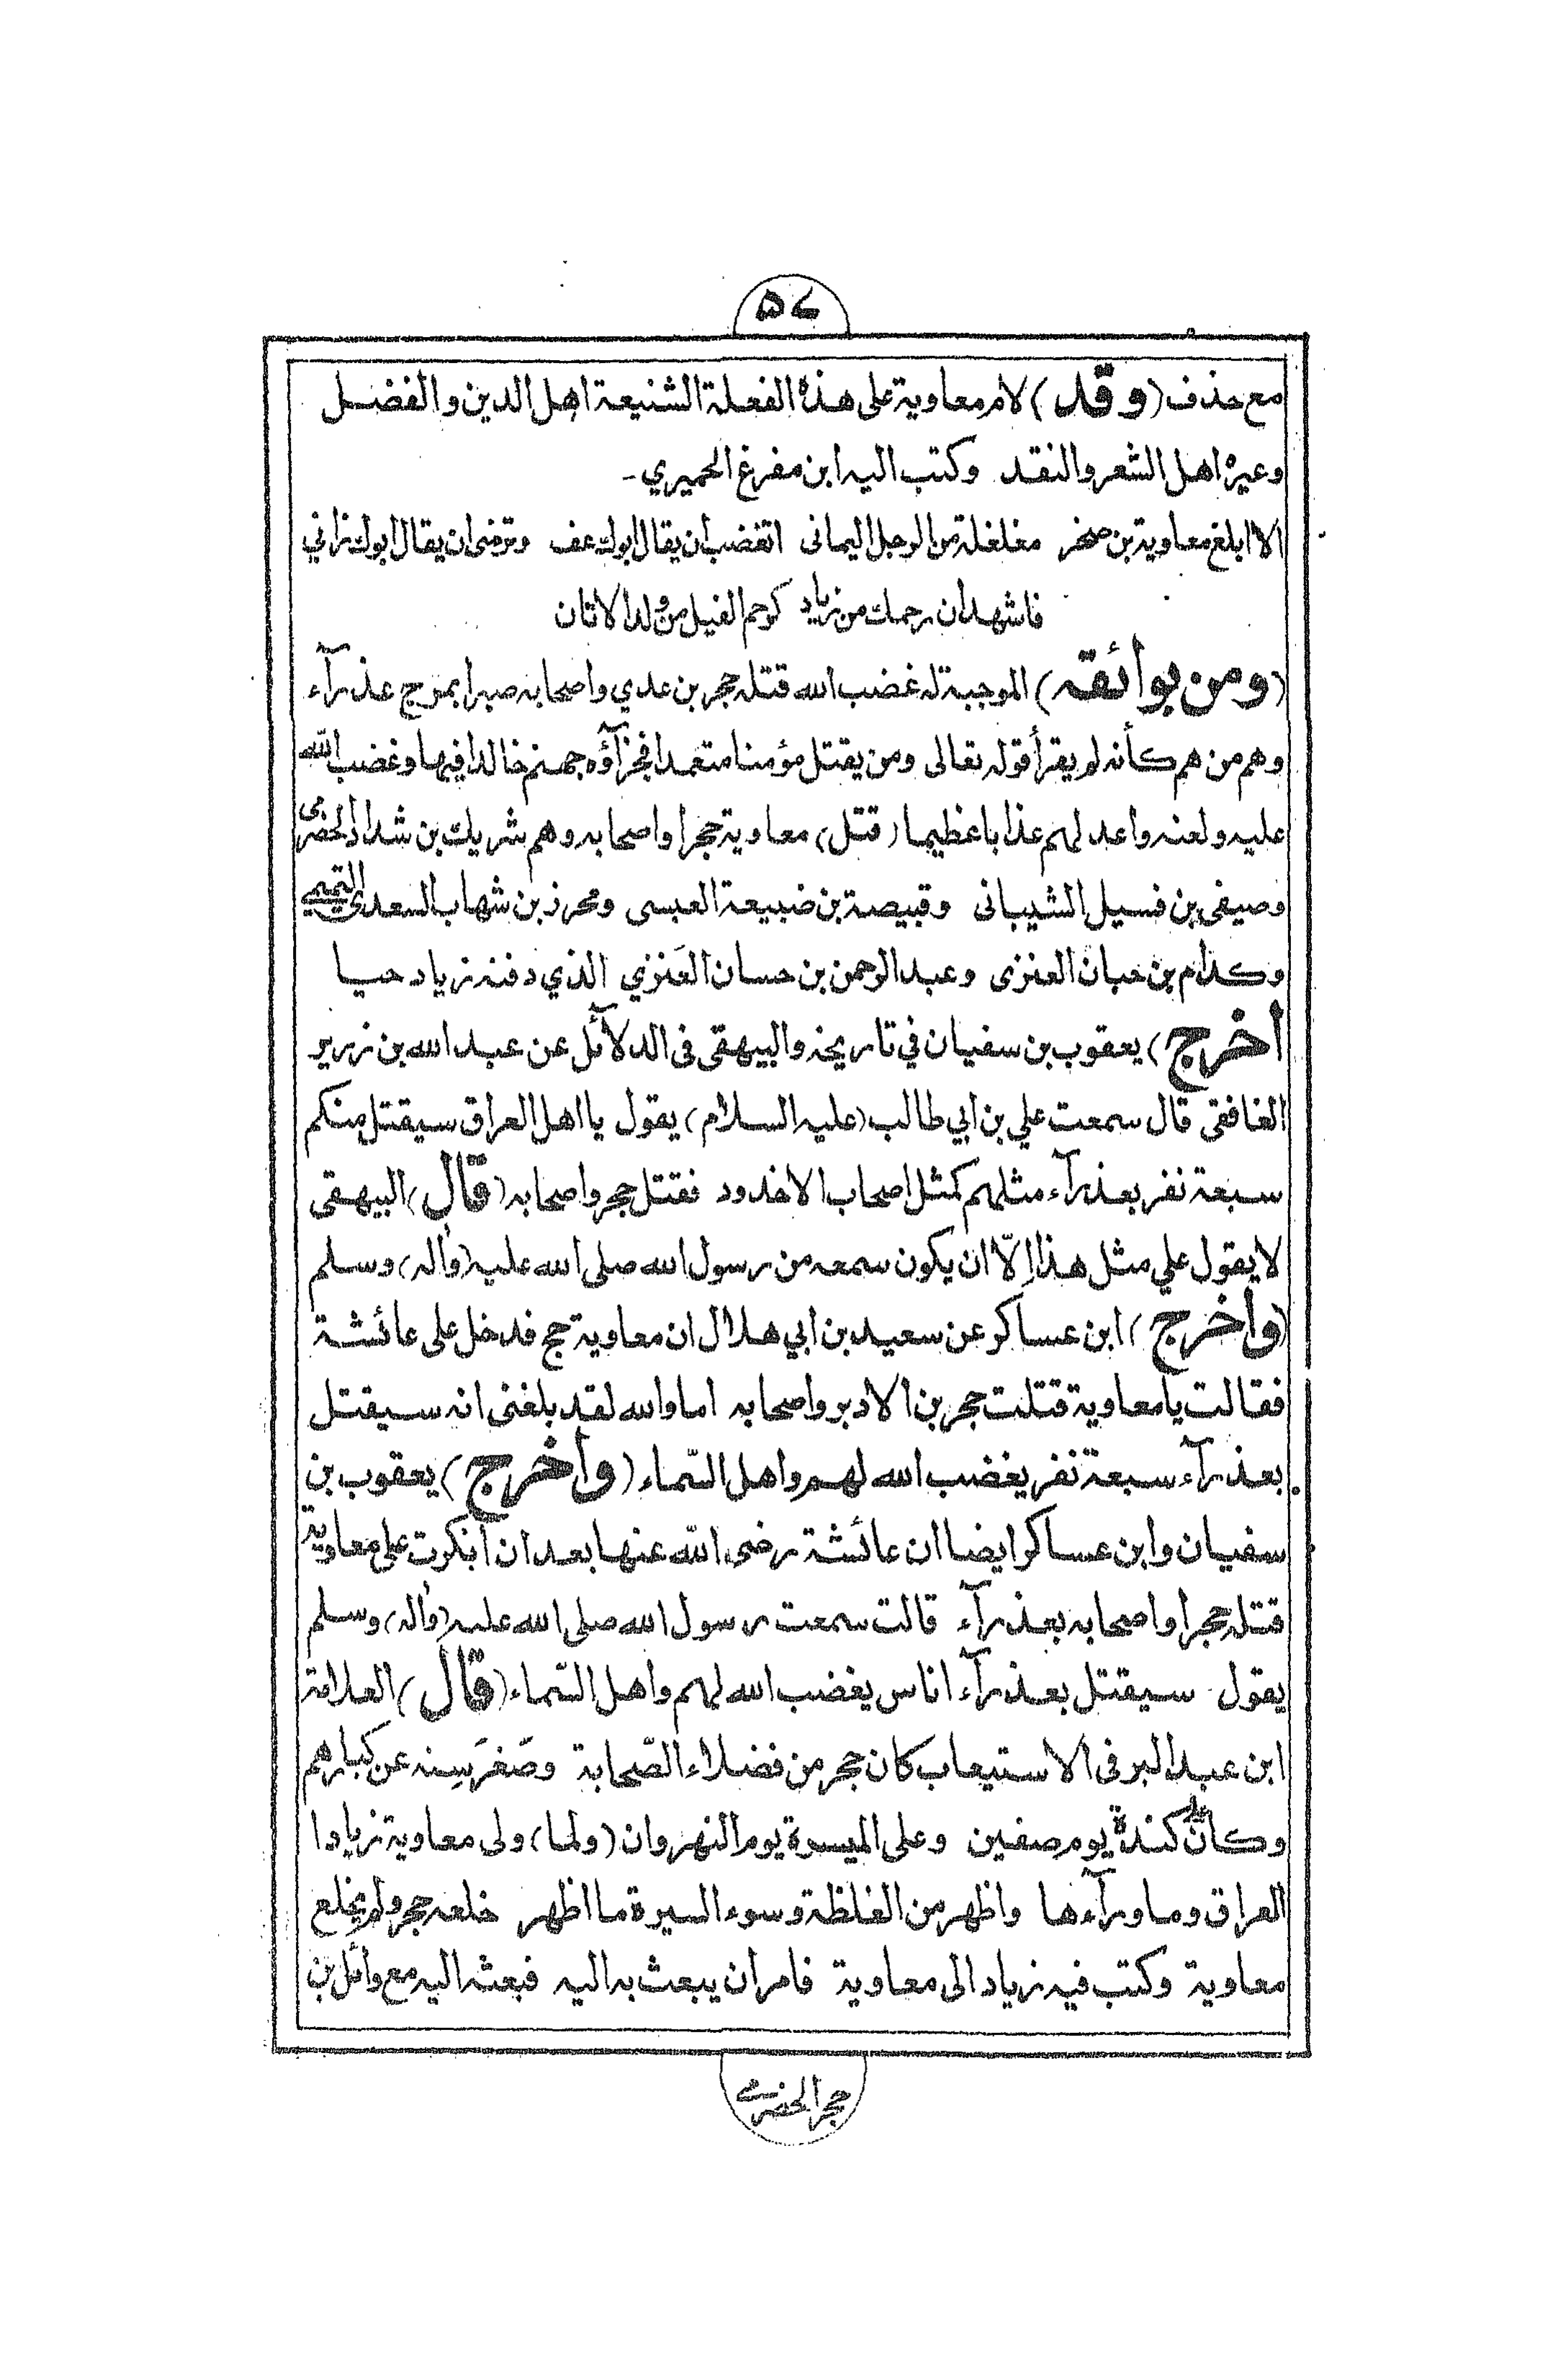 ۵۷
مع حذف (وقد) لام معاوية على هذه الفعلة الشنيعة اهل الدين والفضل
وعيره اهل الشعر والنقد وكتب اليه ابن مفرغ الحميري -
الا ابلغ معاوية بن صخر مغلغلة من الرجل اليمانى اتغضب ان يقال ابوك عف وترضى ان يقال ابوك زاني
فاشهد ان رحمك من زياد كرحم الفيل من ولد الاتان
(ومن بوائقه) الموجبة له غضب الله قتله حجر بن عدي واصحابه صبرا بمرج عذرآء
وهم من هم كأنه لم يقرأ قوله تعالى ومن يقتل مؤمنا متعمدا فجزآؤه جهنم خالدا فيها وغضب الله
عليه ولعنه واعد لهم عذابا عظيما (قتل) معاوية حجرا واصحابه وهم شريك بن شداد الحضرمى
وصيفى بن فسيل الشيبانى وقبيصة بن ضبيعة العبسى ومحرز بن شهاب السعدى التميمي
وكدام بن حبان العنزى وعبد الرحمن بن حسان العَنزي الذي دفنه زياد حيا
أخرج) يعقوب بن سفيان في تاريخه والبيهقى فى الدلآئل عن عبد الله بن زرير
الغافقى قال سمعت علي بن ابي طالب (عليه السلام) يقول يا اهل العراق سيقتل منكم
سبعة نفر بعذرآء مثلهم كمثل اصحاب الاخدود فقتل حجر واصحابه (قال) البيهقى
لا يقول علي مثل هذا إلّا ان يكون سمعه من رسول الله صلى الله عليه (واله) وسلم
(وأخرج) ابن عساكر عن سعيد بن ابي هلال ان معاوية حج فدخل على عائشة
فقالت يا معاوية قتلت حجر بن الادبر واصحابه اما والله لقد بلغنى انه سيقتل
بعذرآء سبعة نفر يغضب الله لهم واهل السّماء (وأخرج) يعقوب بن
سفيان وابن عساكر ايضا ان عائشة رضى الله عنها بعد ان انكرت على معاوية
قتله حجرا واصحابه بعذرآء قالت سمعت رسول الله صلى الله عليه (واله) وسلم
يقول سيقتل بعذرآء اناس يغضب الله لهم واهل السّماء (قال) العلامة
ابن عبد البر فى الاستيعاب كان حجر من فضلاء الصّحابة وصَغرَ سِنه عن كبارهم
وكان على كندة يوم صفين وعلى الميسرة يوم النهروان (ولما) ولى معاوية زيادا
العراق وما ورآءها واظهر من الغلظة وسوء السيرة ما اظهر خلعه حجر ولم يخلع
معاوية وكتب فيه زياد الى معاوية فامر ان يبعث به اليه فبعثه اليه مع وائل بن
حجر الحضرمي